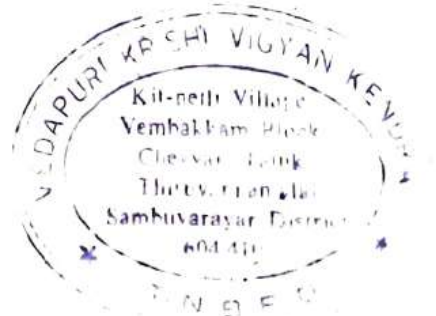 VEDAPURI KRISHI VIGYAN KENDRA
Kil-nelli Village
Vembakkam Block
Cheyyar Taluk
Sambuvarayar District
604 410